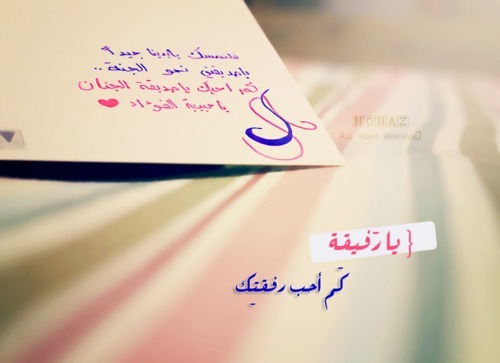 فلنمسك بأيدينا جيداً
ياصديقتي نحو الجنة ..
كم احبك ياصديقة الجنان
ياحبيبة الفؤاد
NONAZ
ALL RIGHT RESERVED
{ يا رفيقة
كم أحب رفقتك